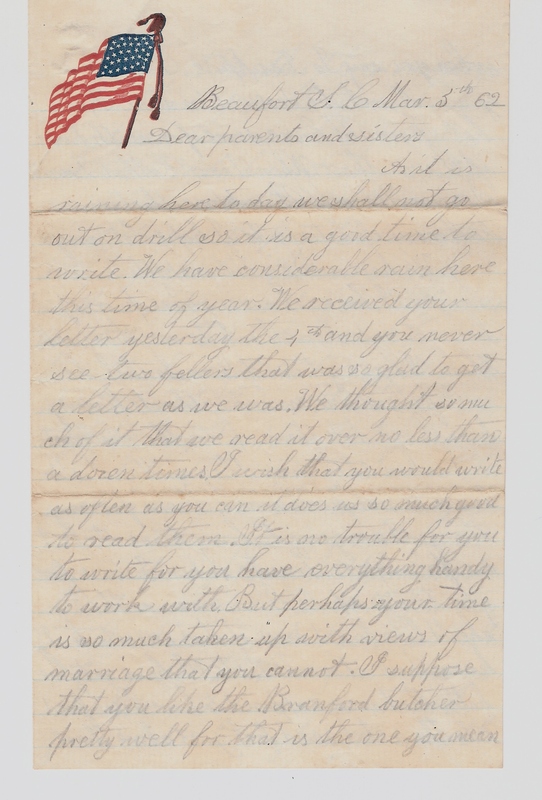 Beaufort S. C Mar. 5th 62
Dear parents and sisters
As it is
raining here to day we shall not go
out on drill so it is a good time to
write. We have considerable rain here
this time of year. We received your
letter yesterday the 4th and you never
see two fellers that was so glad to get
a letter as we was. We thought so mu
ch of it that we read it over no less than
a dozen times. I wish that you would write
as often as you can it does us so much good
to read them. It is no trouble for you
to write for you have everything handy
to work with. But perhaps your time
is so much taken up with views of
marriage that you cannot. I suppose
that you like the Branford butcher
pretty well for that is the one you mean